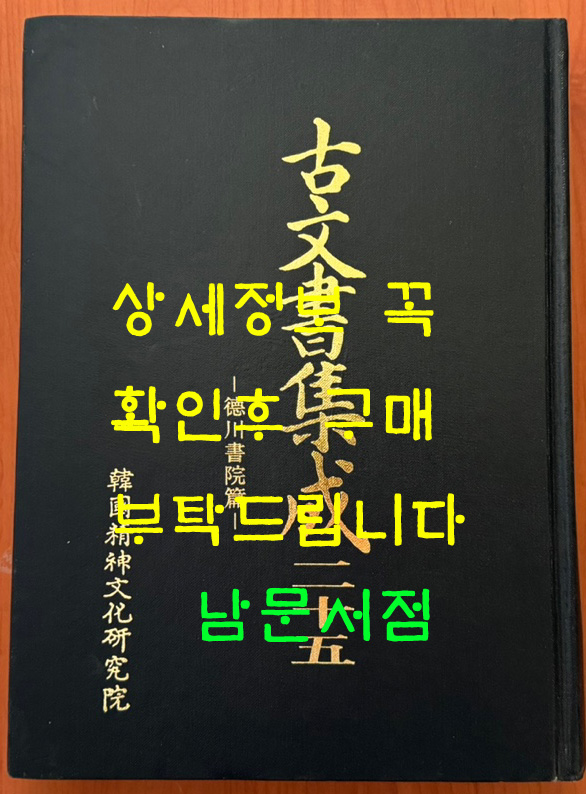 古文書集成 二十五
－德川書院篇－
韓國精神文化硏究院
상세정보 꼭
확인후 구매
부탁드립니다
남문서점